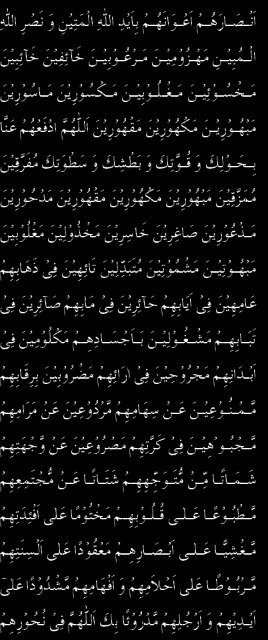 اَنْصَارَهُمْ اَعْوَانَهُمْ بِاَيْدِ اللهِ الْمَتِيْنِ وَ نَصْرِ اللهِ
الْمُبِيْنِ مَهْزُوْمِيْنَ مَرْعُوْبِيْنَ خَآئِفِيْنَ خَآئِبِيْنَ
مَخْسُوْئِيْنَ مَغْلُوْبِيْنَ مَكْسُوْرِيْنَ مَاسُوْرِيْنَ
مَبْهُوْرِيْنَ مَكْهُوْرِيْنَ مَقْهُوْرِيْنَ اَللّٰهُمَّ ادْفَعْهُمْ عَنَّا
بِحَوْلِكَ وَ قُوَّتِكَ وَ بَطْشِكَ وَ سَطْوَتِكَ مُفَرَّقِيْنَ
مُمَزَّقِيْنَ مَبْهُوْرِيْنَ مَكْهُوْرِيْنَ مَقْهُوْرِيْنَ مَدْحُوْرِيْنَ
مَذْعُوْرِيْنَ صَاغِرِيْنَ خَاسِرِيْنَ مَخْذُوْلِيْنَ مَغْلُوْبِيْنَ
مَبْهُوْتِيْنَ مَشْمُوْتِيْنَ مُتَبَدِّلِيْنَ تَائِهِيْنَ فِىْ ذَهَابِهِمْ
عَامِهِيْنَ فِىْ اِيَابِهِمْ حَآئِرِيْنَ فِىْ مَابِهِمْ صَآئِرِيْنَ فِىْ
تَبَابِهِمْ مَشْغُوْلِيْنَ بِاَجْسَادِهِمْ مَكْلُوْمِيْنَ فِىْ
اَبْدَانِهِمْ مَجْرُوْحِيْنَ فِىْ اٰرَائِهِمْ مَضْرُوْبِيْنَ بِرِقَابِهِمْ
مَّمْنُوْعِيْنَ عَنْ سِهَامِهِمْ مَّرْدُوْعِيْنَ عَنْ مَرَامِهِمْ
مَّجْبُوْهِيْنَ فِىْ كَرَّتِهِمْ مَصْرُوْعِيْنَ عَنْ وَّجْهَتِهِمْ
شَمَاتًا مِّنْ مُّتَوَجِّهِهِمْ شَتَاتًا عَنْ مُّجْتَمِعِهِمْ
مَّطْبُوْعًا عَلٰى قُلُوْبِهِمْ مَخْتُوْمًا عَلٰى اَفْئِدَتِهِمْ
مَّغْشِيًّا عَلٰى اَبْصَارِهِمْ مَعْقُوْدًا عَلٰى اَلْسِنَتِهِمْ
مَّرْبُوْطًا عَلٰى اَحْلَامِهِمْ وَ اَفْهَامِهِمْ مَّشْدُوْدًا عَلٰى
اَيْدِيْهِمْ وَ اَرْجُلِهِمْ مَّدْرُوْئًا بِكَ اَللّٰهُمَّ فِىْ نُحُوْرِهِمْ